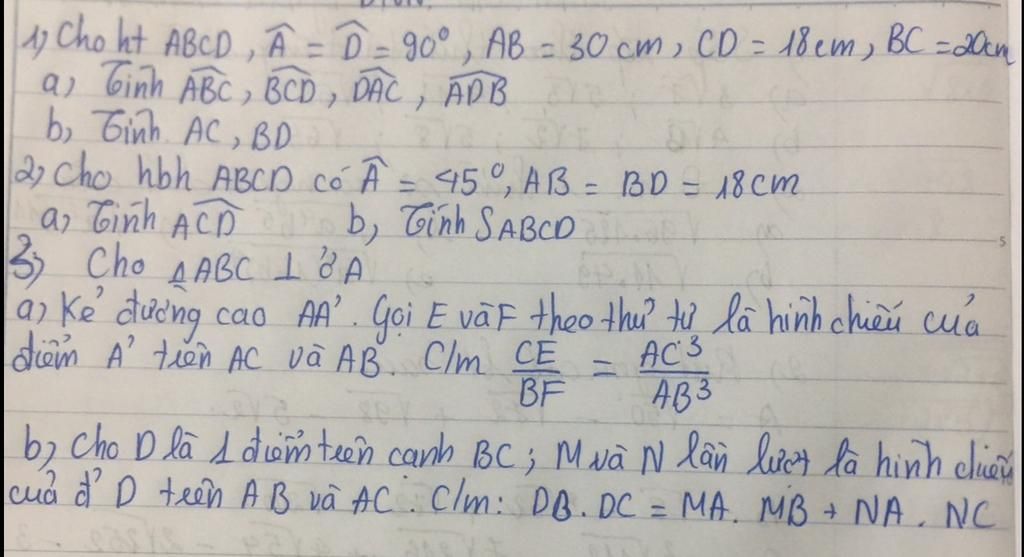 1) Cho ht ABCD, Â = D̂ = 90°, AB = 30 cm, CD = 18 cm, BC = 20cm
a) Tính \widehat{ABC}, \widehat{BCD}, \widehat{DAC}, \widehat{ADB}
b) Tính AC, BD
2) Cho hbh ABCD có Â = 45°, AB = BD = 18cm
a) Tính \widehat{ACD} b) Tính SABCD
3) Cho ΔABC ⊥ ở A
a) Kẻ đường cao AA'. Gọi E và F theo thứ tự là hình chiếu của
điểm A' trên AC và AB. C/m CE/BF = AC³/AB³
b) Cho D là 1 điểm trên cạnh BC; M và N lần lượt là hình chiếu
của đ' D trên AB và AC. C/m: DB. DC = MA. MB + NA. NC